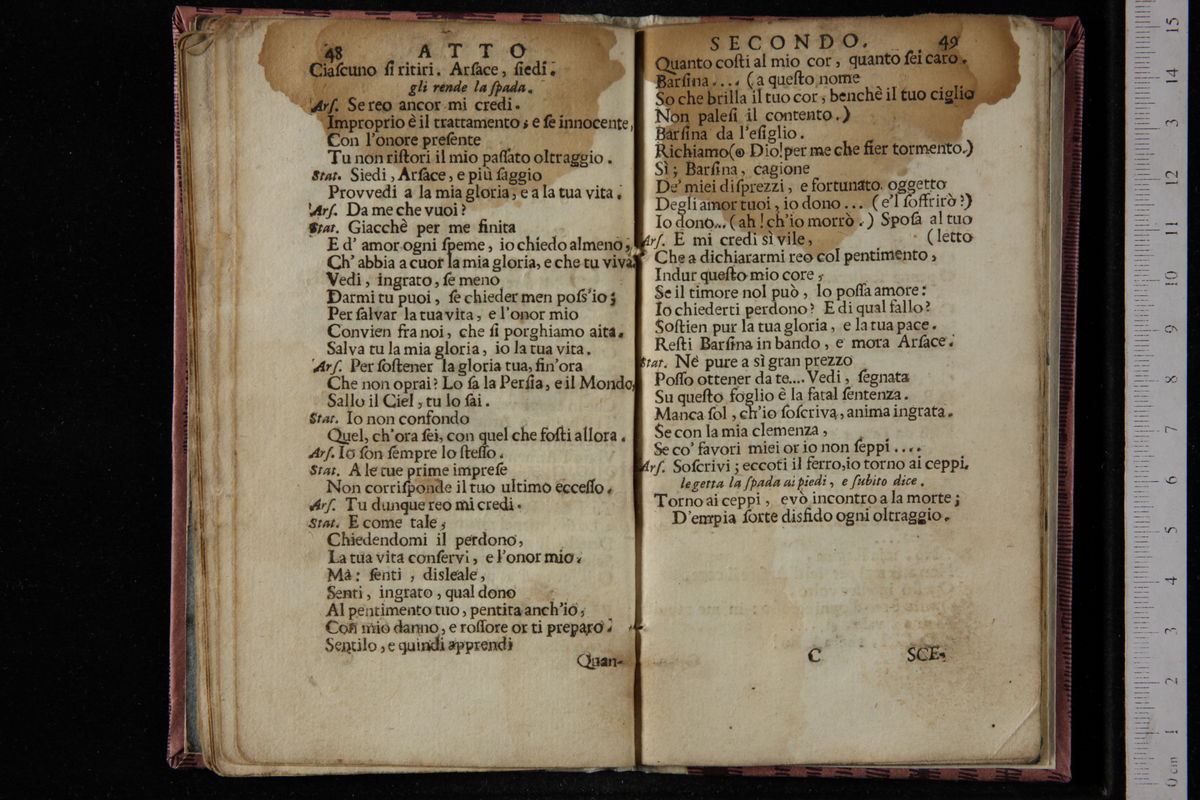 48 ATTO
Ciaſcuno ſi ritiri. Arſace, ſiedi.
gli rende la ſpada.
Arſ. Se reo ancor mi credi.
Improprio è il trattamento; e ſe innocente,
Con l'onore preſente
Tu non riſtori il mio paſſato oltraggio.
Stat. Siedi, Arſace, e più ſaggio
Provvedi a la mia gloria, e a la tua vita.
Arſ. Da me che vuoi?
Stat. Giacchè per me finita
E d' amor ogni ſpeme, io chiedo almeno,
Ch' abbia a cuor la mia gloria, e che tu viva.
Vedi, ingrato, ſe meno
Darmi tu puoi, ſe chieder men poſs'io;
Per ſalvar la tua vita, e l'onor mio
Convien fra noi, che ſi porghiamo aita.
Salva tu la mia gloria, io la tua vita.
Arſ. Per ſoſtener la gloria tua, fin'ora
Che non oprai? Lo ſà la Perſia, e il Mondo,
Sallo il Ciel, tu lo ſai.
Stat. Io non confondo
Quel, ch'ora ſei, con quel che foſti allora.
Arſ. Io ſon ſempre lo ſteſſo.
Stat. A le tue prime impreſe
Non corriſponde il tuo ultimo ecceſſo.
Arſ. Tu dunque reo mi credi.
Stat. E come tale,
Chiedendomi il perdono,
La tua vita conſervi, e l'onor mio.
Mà: ſenti, disleale,
Senti, ingrato, qual dono
Al pentimento tuo, pentita anch'io,
Con mio danno, e roſſore or ti preparo.
Sentilo, e quindi apprendi
Quan-
SECONDO. 49
Quanto coſti al mio cor, quanto ſei caro.
Barſina.... (a queſto nome
So che brilla il tuo cor, benchè il tuo ciglio
Non paleſi il contento.)
Barſina da l'eſiglio.
Richiamo (o Dio! per me che fier tormento.)
Sì; Barſina, cagione
De' miei diſprezzi, e fortunato oggetto
Degli amor tuoi, io dono... (e'l ſoffrirò?)
Io dono... (ah! ch'io morrò.) Spoſa al tuo
(letto
Arſ. E mi credi sì vile,
Che a dichiararmi reo col pentimento,
Indur queſto mio core,
Se il timore nol può, lo poſſa amore:
Io chiederti perdono? E di qual fallo?
Soſtien pur la tua gloria, e la tua pace.
Reſti Barſina in bando, e mora Arſace.
Stat. Nè pure a sì gran prezzo
Poſſo ottener da te.... Vedi, ſegnata
Su queſto foglio è la fatal ſentenza.
Manca ſol, ch'io ſoſcriva, anima ingrata.
Se con la mia clemenza,
Se co' favori miei or io non ſeppi....
Arſ. Soſcrivi; eccoti il ferro, io torno ai ceppi.
le getta la ſpada ai piedi, e ſubito dice.
Torno ai ceppi, e vò incontro a la morte;
D'empia ſorte disfido ogni oltraggio.
C SCE-
15
14
13
12
11
10
9
8
7
6
5
4
3
2
1
0 cm